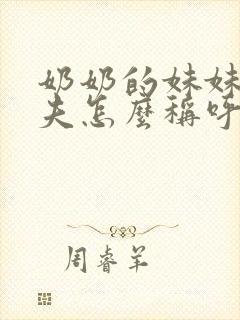 奶奶的妹妹
夫怎麼稱呼
周睿羊